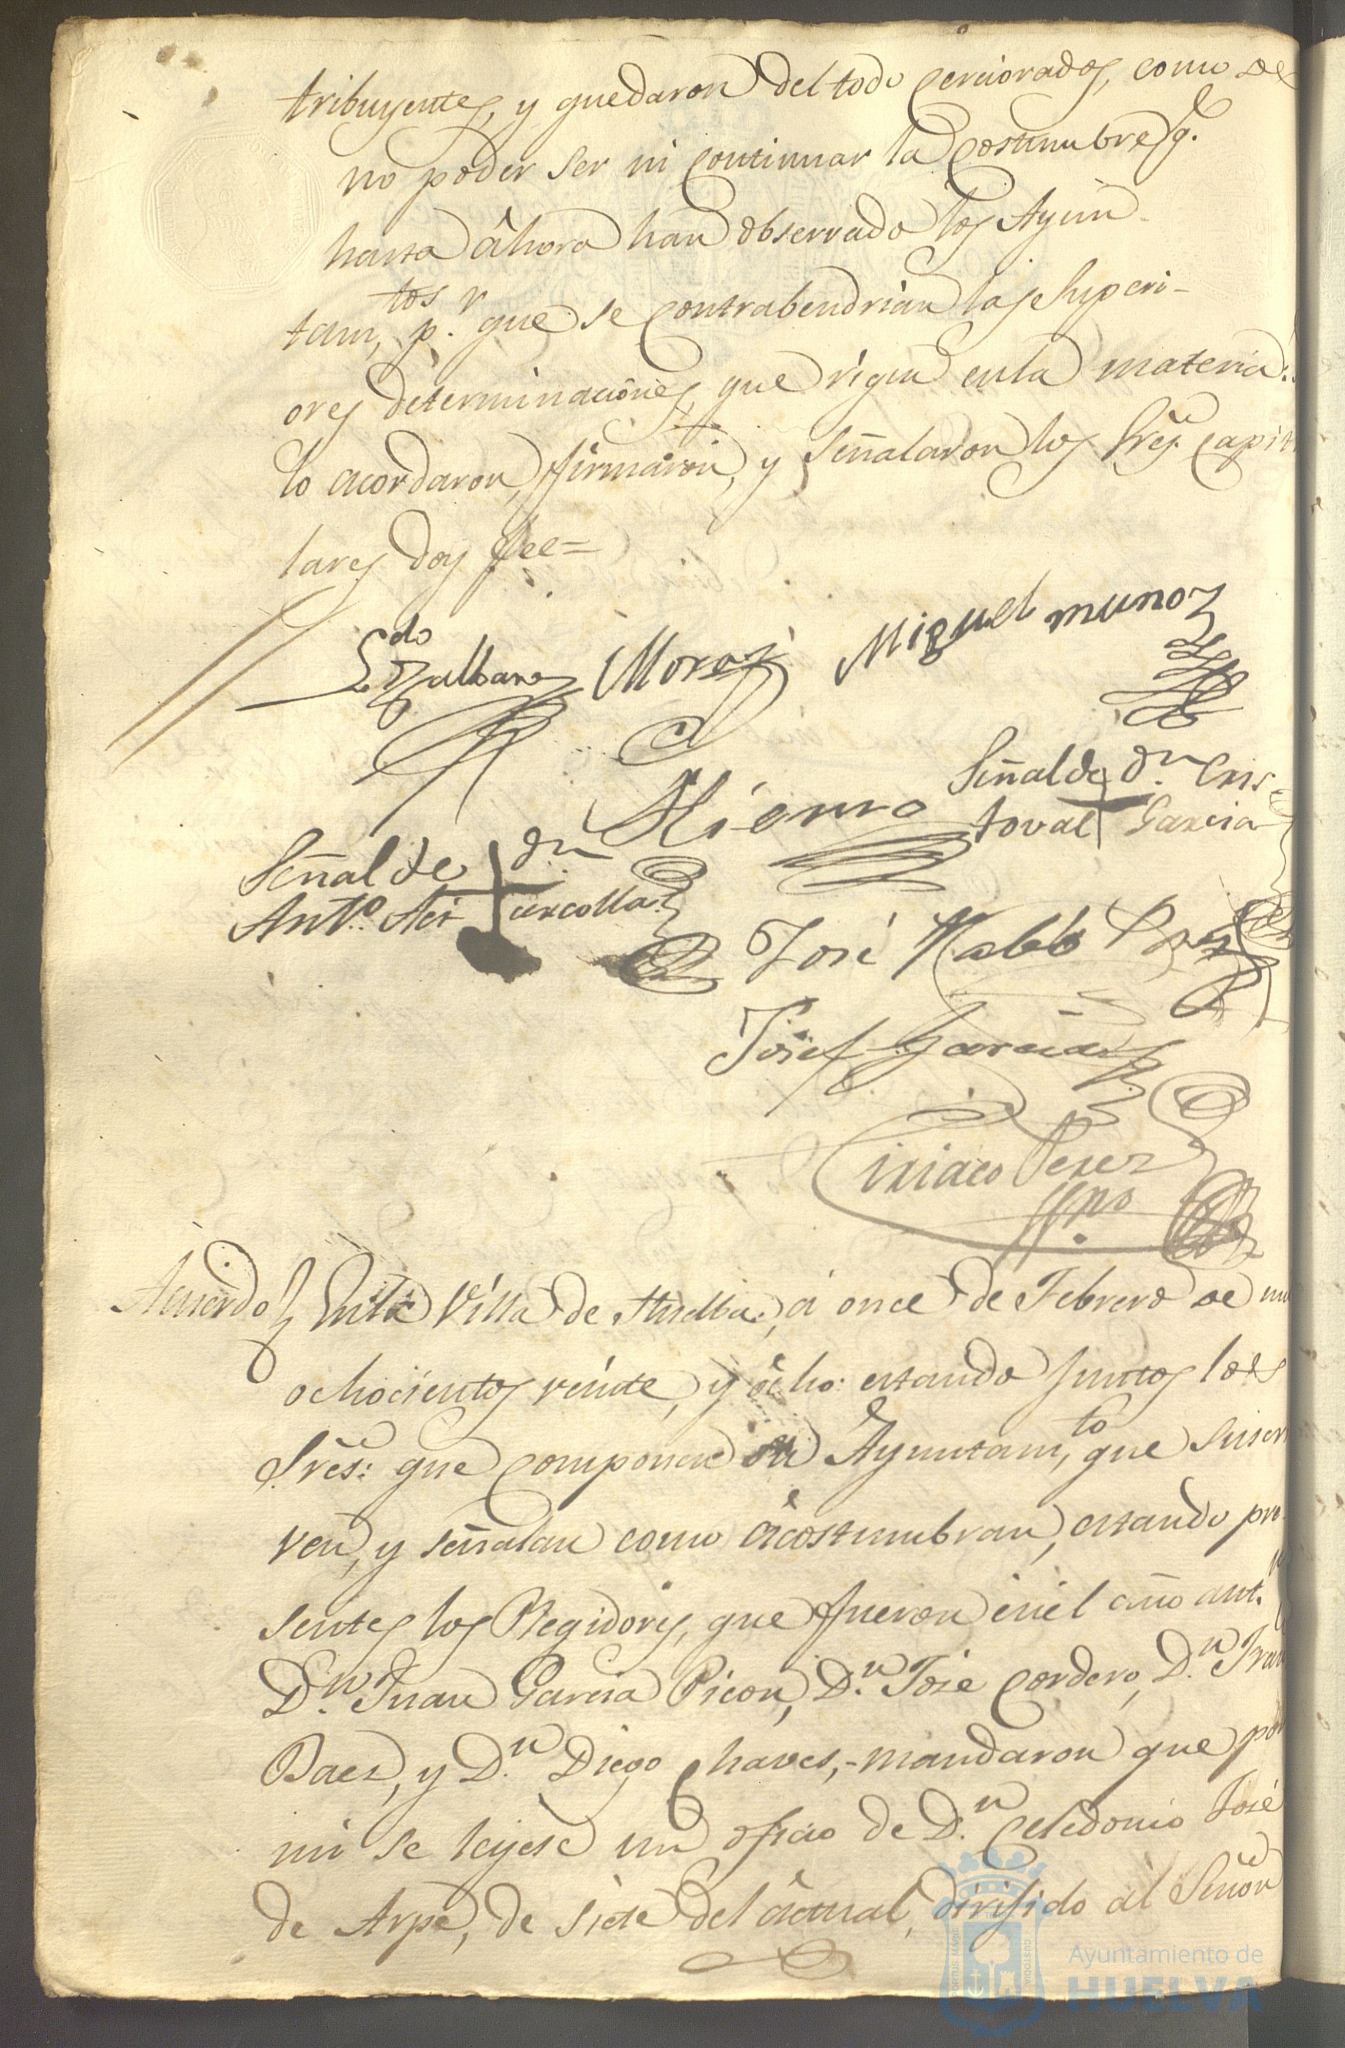 tribuyentes, y quedaron del todo cerciorados, como de
no poder ser ni continuar la costumbre q.e
hasta áhora han observado los Ayun-
tam,tos p.r que se contrabendrian las Superi-
ores determinaciônes, que rigen enla materia:
lo acordaron, firmaron, y señalaron los Sres. capit
lares doy fee=
Miguel munoz
Moras
Señal de dn Cris
toval Garcia
Hierro
Señal de dn
Ant.o
José Pérez
Josef Garcia
Ciriaco Perez
Sno
Acuerdo } Enla Villa de Huelba, á once de Febrero de mil
ochocientos veinte, y ôcho: estando juntos los
Sres: que componen su Ayuntam,to que suscri
ven, y señalan como âcostumbran, estando pre
sentes los Regidores, que fueron enel año ant.r
D.n Juan Garcia Picon, D.n José Cordero, D.n Fran
Baez, y D.n Diego Chaves,- mandaron que por
mi se leyese un oficio de D.n Celedonio José
de Arpe, de siete del âctual, dirijido al Señor
Ayuntamiento de
HUELVA